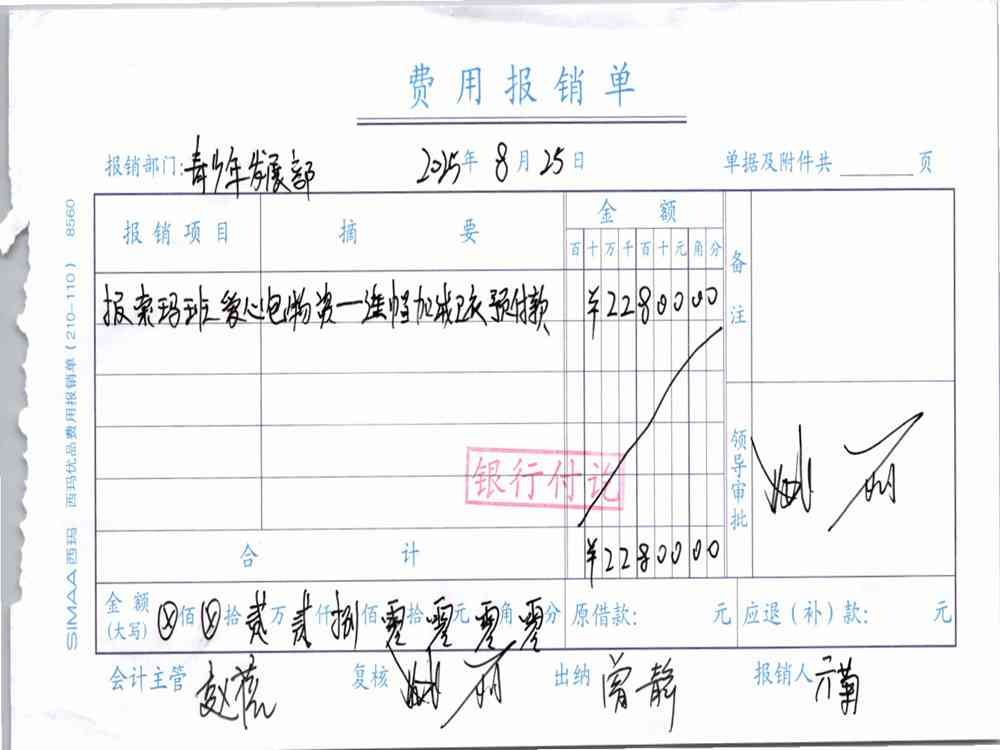 费用报销单
报销部门:青少年发展部 2025年 8月25日 单据及附件共 页
报销项目 摘要 金额 备注
百十万千百十元角分
报索玛班爱心包物资一 预付款 ¥2280000
领导审批
银行付讫
合计 ¥2280000
金额(大写) ⊗佰⊗拾贰万贰仟捌佰零拾零元零角零分 原借款: 元 应退(补)款: 元
会计主管 赵 复核 出纳 曾静 报销人
SIMAA西玛 西玛优品费用报销单(210-110) 8560